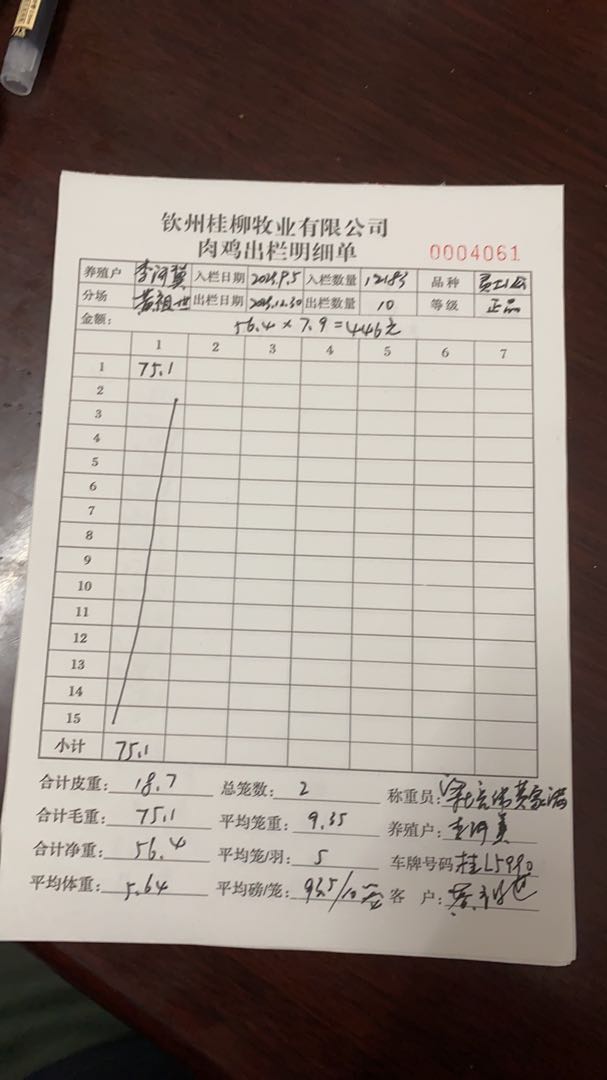 钦州桂柳牧业有限公司
肉鸡出栏明细单 0004061
养殖户 李河翼 入栏日期 2023.9.5 入栏数量 12183 品种
分场 黄祖世 出栏日期 2023.12.30 出栏数量 10 等级 正品
金额: 56.4 × 7.9 = 446元
1 2 3 4 5 6 7
1 75.1
2
3
4
5
6
7
8
9
10
11
12
13
14
15
小计 75.1
合计皮重: 18.7 总笼数: 2 称重员:
合计毛重: 75.1 平均笼重: 9.35 养殖户: 李河翼
合计净重: 56.4 平均笼/羽: 5 车牌号码 桂L5990
平均体重: 5.64 平均磅/笼: 93.5/10 客 户: